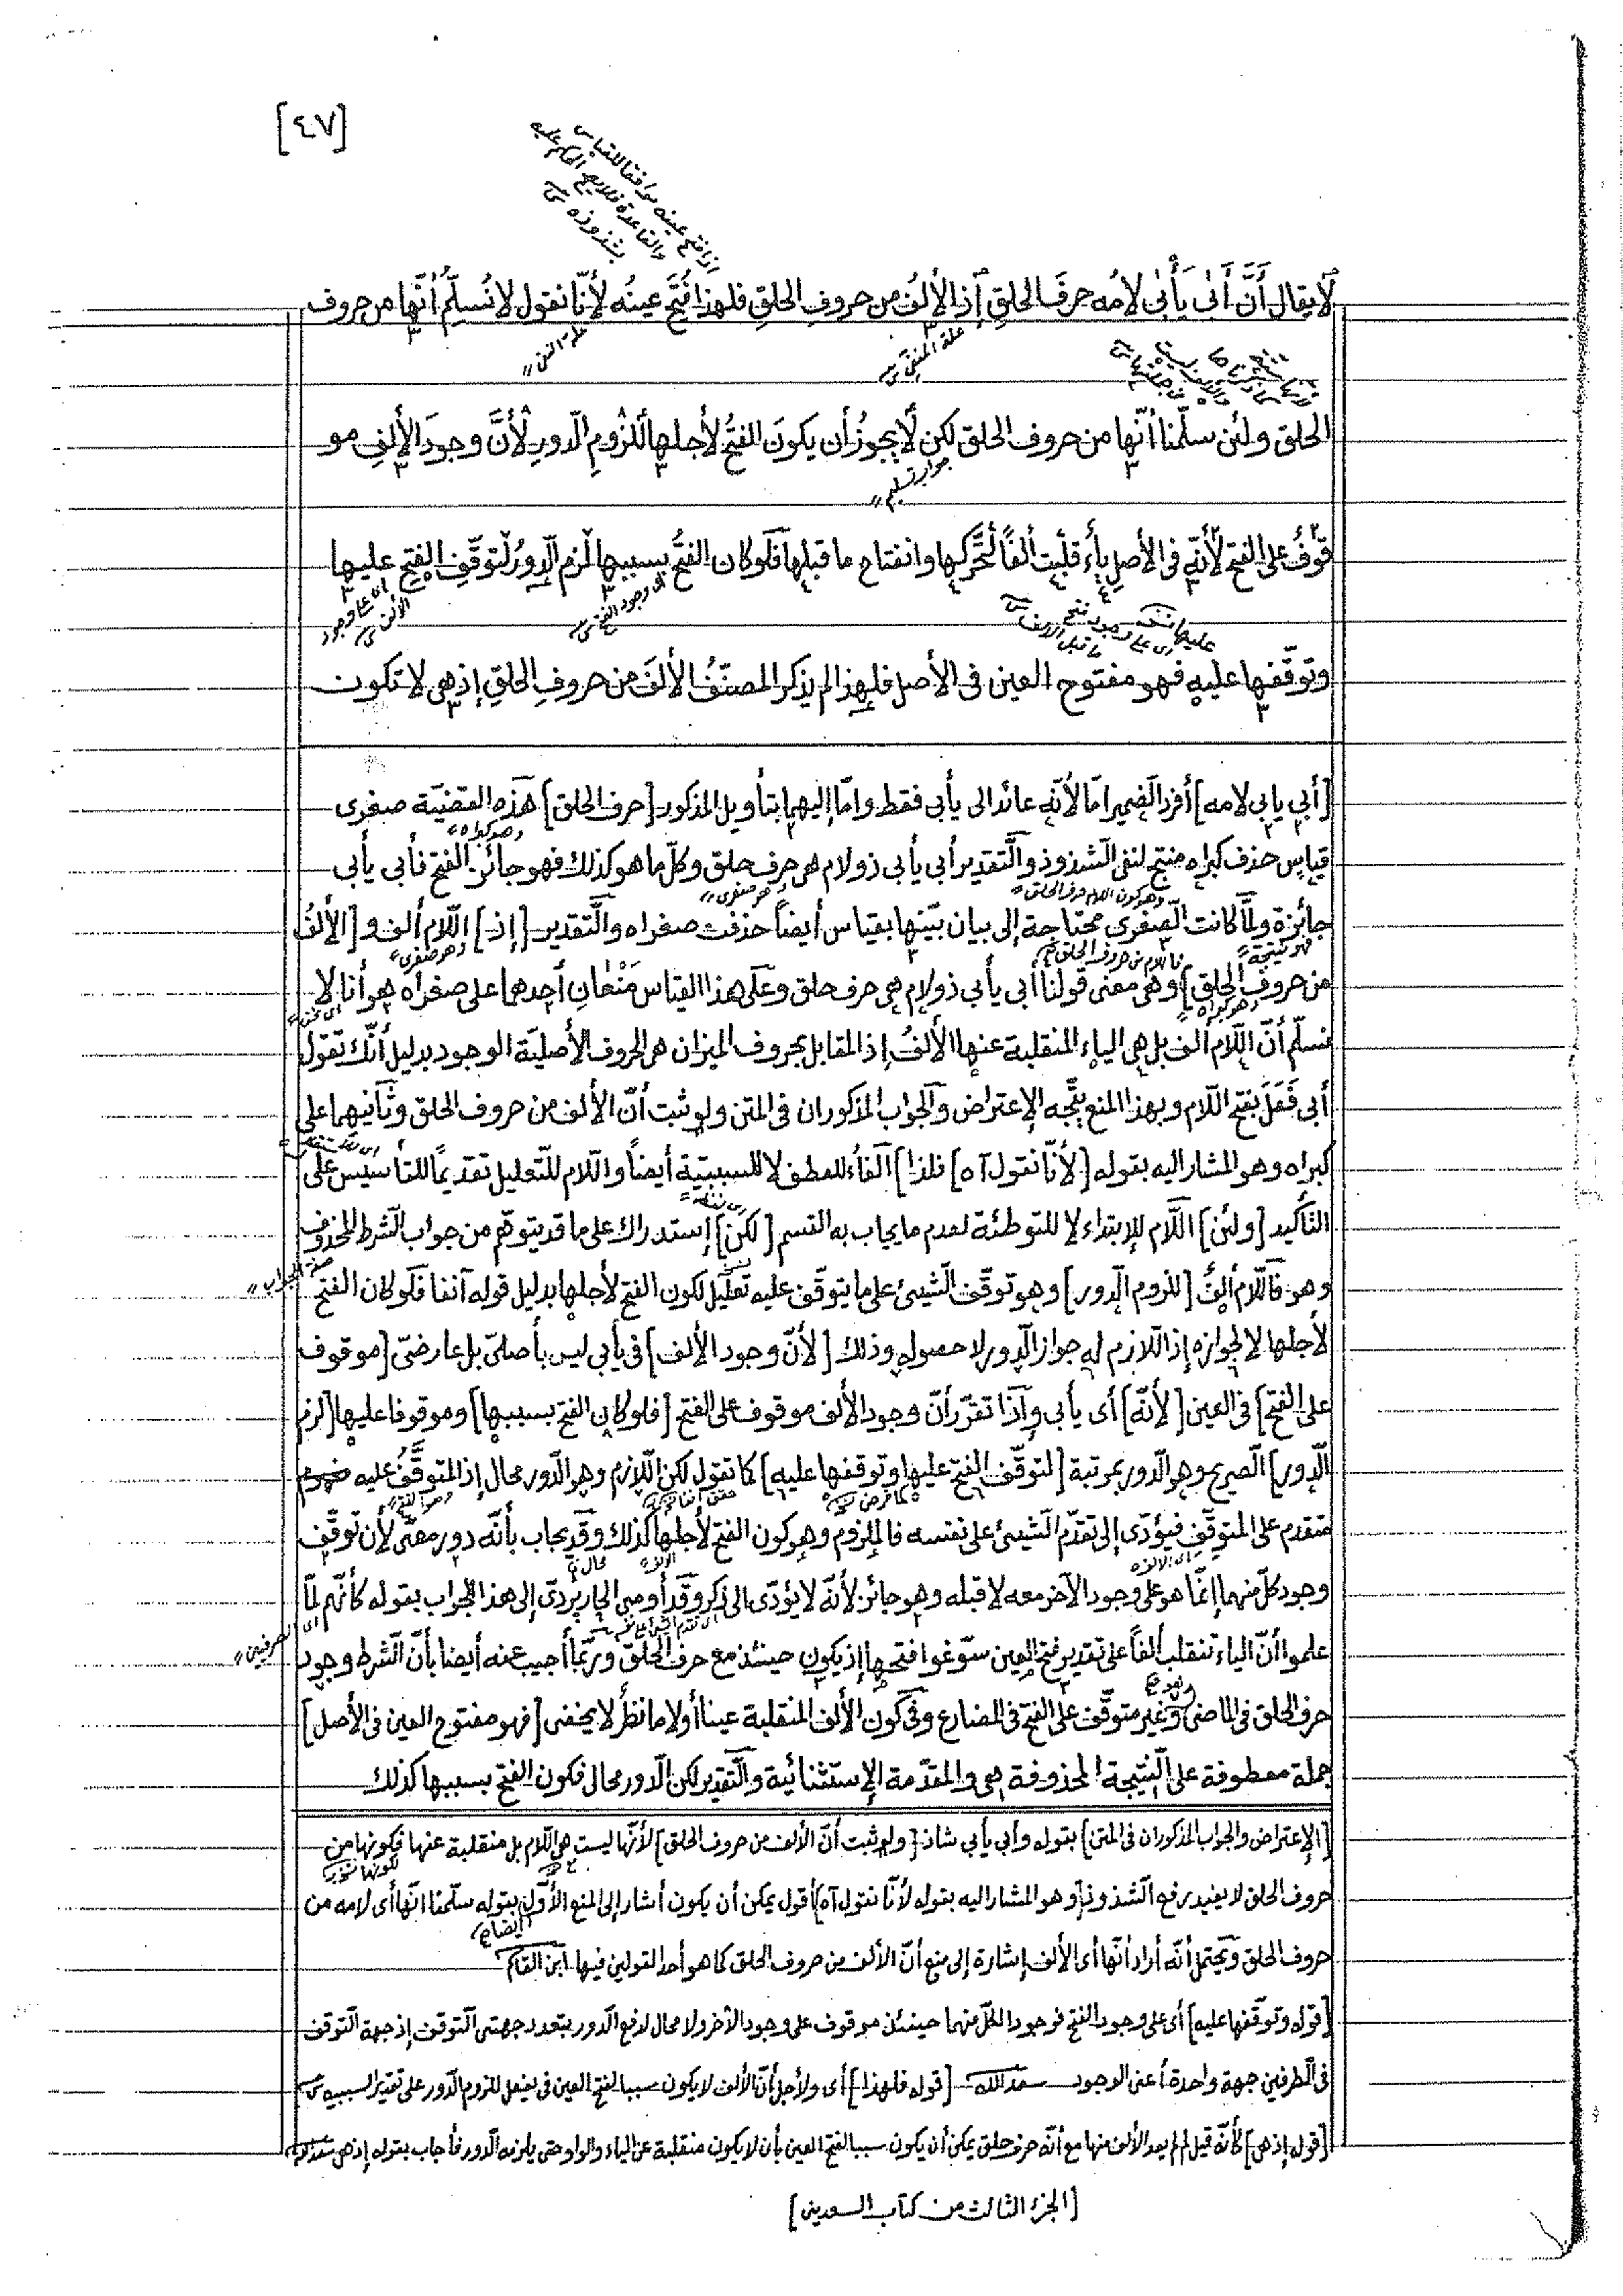 [٤٧]
لا يقال أنّ أبى يأبى لامه حرف الحلق إذ الألف من حروف الحلق فلهذا فتح عينه لأنّا نقول لا نسلّم أنّها من حروف
الحلق ولئن سلّمنا أنّها من حروف الحلق لكن لا يجوز أن يكون الفتح لأجلها للزوم الدّور لأنّ وجود الألف مو
قوف على الفتح لأنّه فى الأصل ياء قلبت ألفاً لتحرّكها وانفتاح ما قبلها فلو كان الفتح بسببها لزم الدّور لتوقّف الفتح عليها
وتوقّفها عليه فهو مفتوح العين فى الأصل فلهذا لم يذكر المصنّف الألف من حروف الحلق إذ هى لا تكون
[أبى يابى لامه] أفرد الضمير امّا لأنّه عائد الى يأبى فقط وامّا إليهما بتأويل المذكور [حرف الحلق] هذه القضيّة صغرى
قياس حذف كبراه منتج لنفى الشذوذ والتّقدير أبى يأبى ذو لام هى حرف حلق وكلّ ما هو كذلك فهو جائز الفتح فأبى يأبى
جائزة ولمّا كانت الصغرى محتاجة إلى بيان بيّنها بقياس أيضاً حذفت صغراه والتّقدير [إذ] اللّام ألف و[الألف
من حروف الحلق] وهى معنى قولنا أبى يأبى ذو لام هى حرف حلق وعلى هذا القياس منعان أحدهما على صغراه هو أنا لا
نسلّم أنّ اللّام ألف بل هى الياء المنقلبة عنها الألف إذ المقابل بحروف الميزان هى الحروف الأصلية الوجود بدليل أنّك تقول
أبى فَعَلَ بفتح اللّام وبهذا المنع يتّجه الإعتراض والجواب المذكوران فى المتن ولو ثبت أنّ الألف من حروف الحلق وثانيهما على
كبراه وهو المشار اليه بقوله [لأنّا نقول آه] فلذا] الفاء للعطف لا للسببيّة أيضاً واللّام للتّعليل تقديمًا للتأسيس على
التأكيد [ولئن] اللّام للإبتداء لا للتوطئة لعدم ما يجاب به القسم [لكن] إستدراك على ما قد يتوهّم من جواب الشرط المحذوف
وهو فاللّام ألف [للزوم الدّور] وهو توقّف الشيئ على ما يتوقّف عليه تعليل لكون الفتح لأجلها بدليل قوله آنفا فلو كان الفتح
لأجلها لا لجوازه إذ اللّازم له جواز الدّور لا حصوله وذلك [لأنّ وجود الألف] فى يأبى ليس بأصلىّ بل عارضىّ [موقوف
على الفتح] فى العين [لأنّه] أى يأبى وإذا تقرّر أنّ وجود الألف موقوف على الفتح [فلو كان الفتح بسببها] وموقوفا عليها [لزم
الدّور] الصريح وهو الدّور بمرتبة [لتوقّف الفتح عليها وتوقفها عليه] كما تقول لكن اللّازم وهو الدّور محال إذ المتوقّف عليه
متقدم على المتوقّف فيؤدّى إلى تقدّم الشيئ على نفسه فالملزوم وهو كون الفتح لأجلها كذلك وقد يجاب بأنّه دور معىّ لأن توقّف
وجود كلّ منهما إنّما هو على وجود الآخر معه لا قبله وهو جائز لأنّه لا يؤدّى الى ذكر وقد أومى الجار بردى إلى هذا الجواب بقوله كأنّهم لمّا
علموا أنّ الياء تنقلب ألفاً على تقدير فتح العين سوّغوا فتحها إذ يكون حينئذ مع حرف الحلق وربّما أجيب عنه أيضا بأنّ الشرط وجود
حرف الحلق فى الماضى وغير متوقّف على الفتح فى المضارع وفى كون الألف المنقلبة عينا أو لاما نظر لا يخفى [فهو مفتوح العين فى الأصل]
جملة معطوفة على النتيجة المحذوفة هى والمقدّمة الإستثنائية والتّقدير لكن الدّور محال فكون الفتح بسببها كذلك
[الإعتراض والجواب المذكوران فى المتن] بقوله وأبى يأبى شاذ [ولو ثبت أنّ الألف من حروف الحلق] لأنّها ليست هى اللّام بل منقلبة عنها فكونها من
حروف الحلق لا يفيد رفع الشذوذ [وهو المشار اليه بقوله لأنّا نقول آه] أقول يمكن أن يكون أشار إلى المنع الأوّل بقوله سلّمنا انّها أى لامه من
حروف الحلق ويحتمل أنّه أراد أنّها أى الألف إشارة إلى منع أنّ الألف من حروف الحلق كما هو أحد القولين فيها ابن القاسم
[قوله وتوقّفها عليه] أى على وجود الفتح فوجود الكلّ منهما حينئذ موقوف على وجود الآخر ولا محال لدفع الدّور بتعدد جهتى التوقف إذ جهة التوقف
فى الطرفين جهة واحدة أعنى الوجود سعد الله [قوله فلهذا] أى ولأجل أنّ الألف لا يكون سببا لفتح العين فى يفعل للزوم الدّور على تقدير السببيه
[قوله إذ هى] كأنّه قيل لم لم يعد الألف منها مع أنّه حرف حلق يمكن أن يكون سببا لفتح العين بأن لا يكون منقلبة عن الياء والواو حتى يلزمه الدّور فأجاب بقوله إذ هى سعد الله
[الجزء الثالث من كتاب السعدينى]